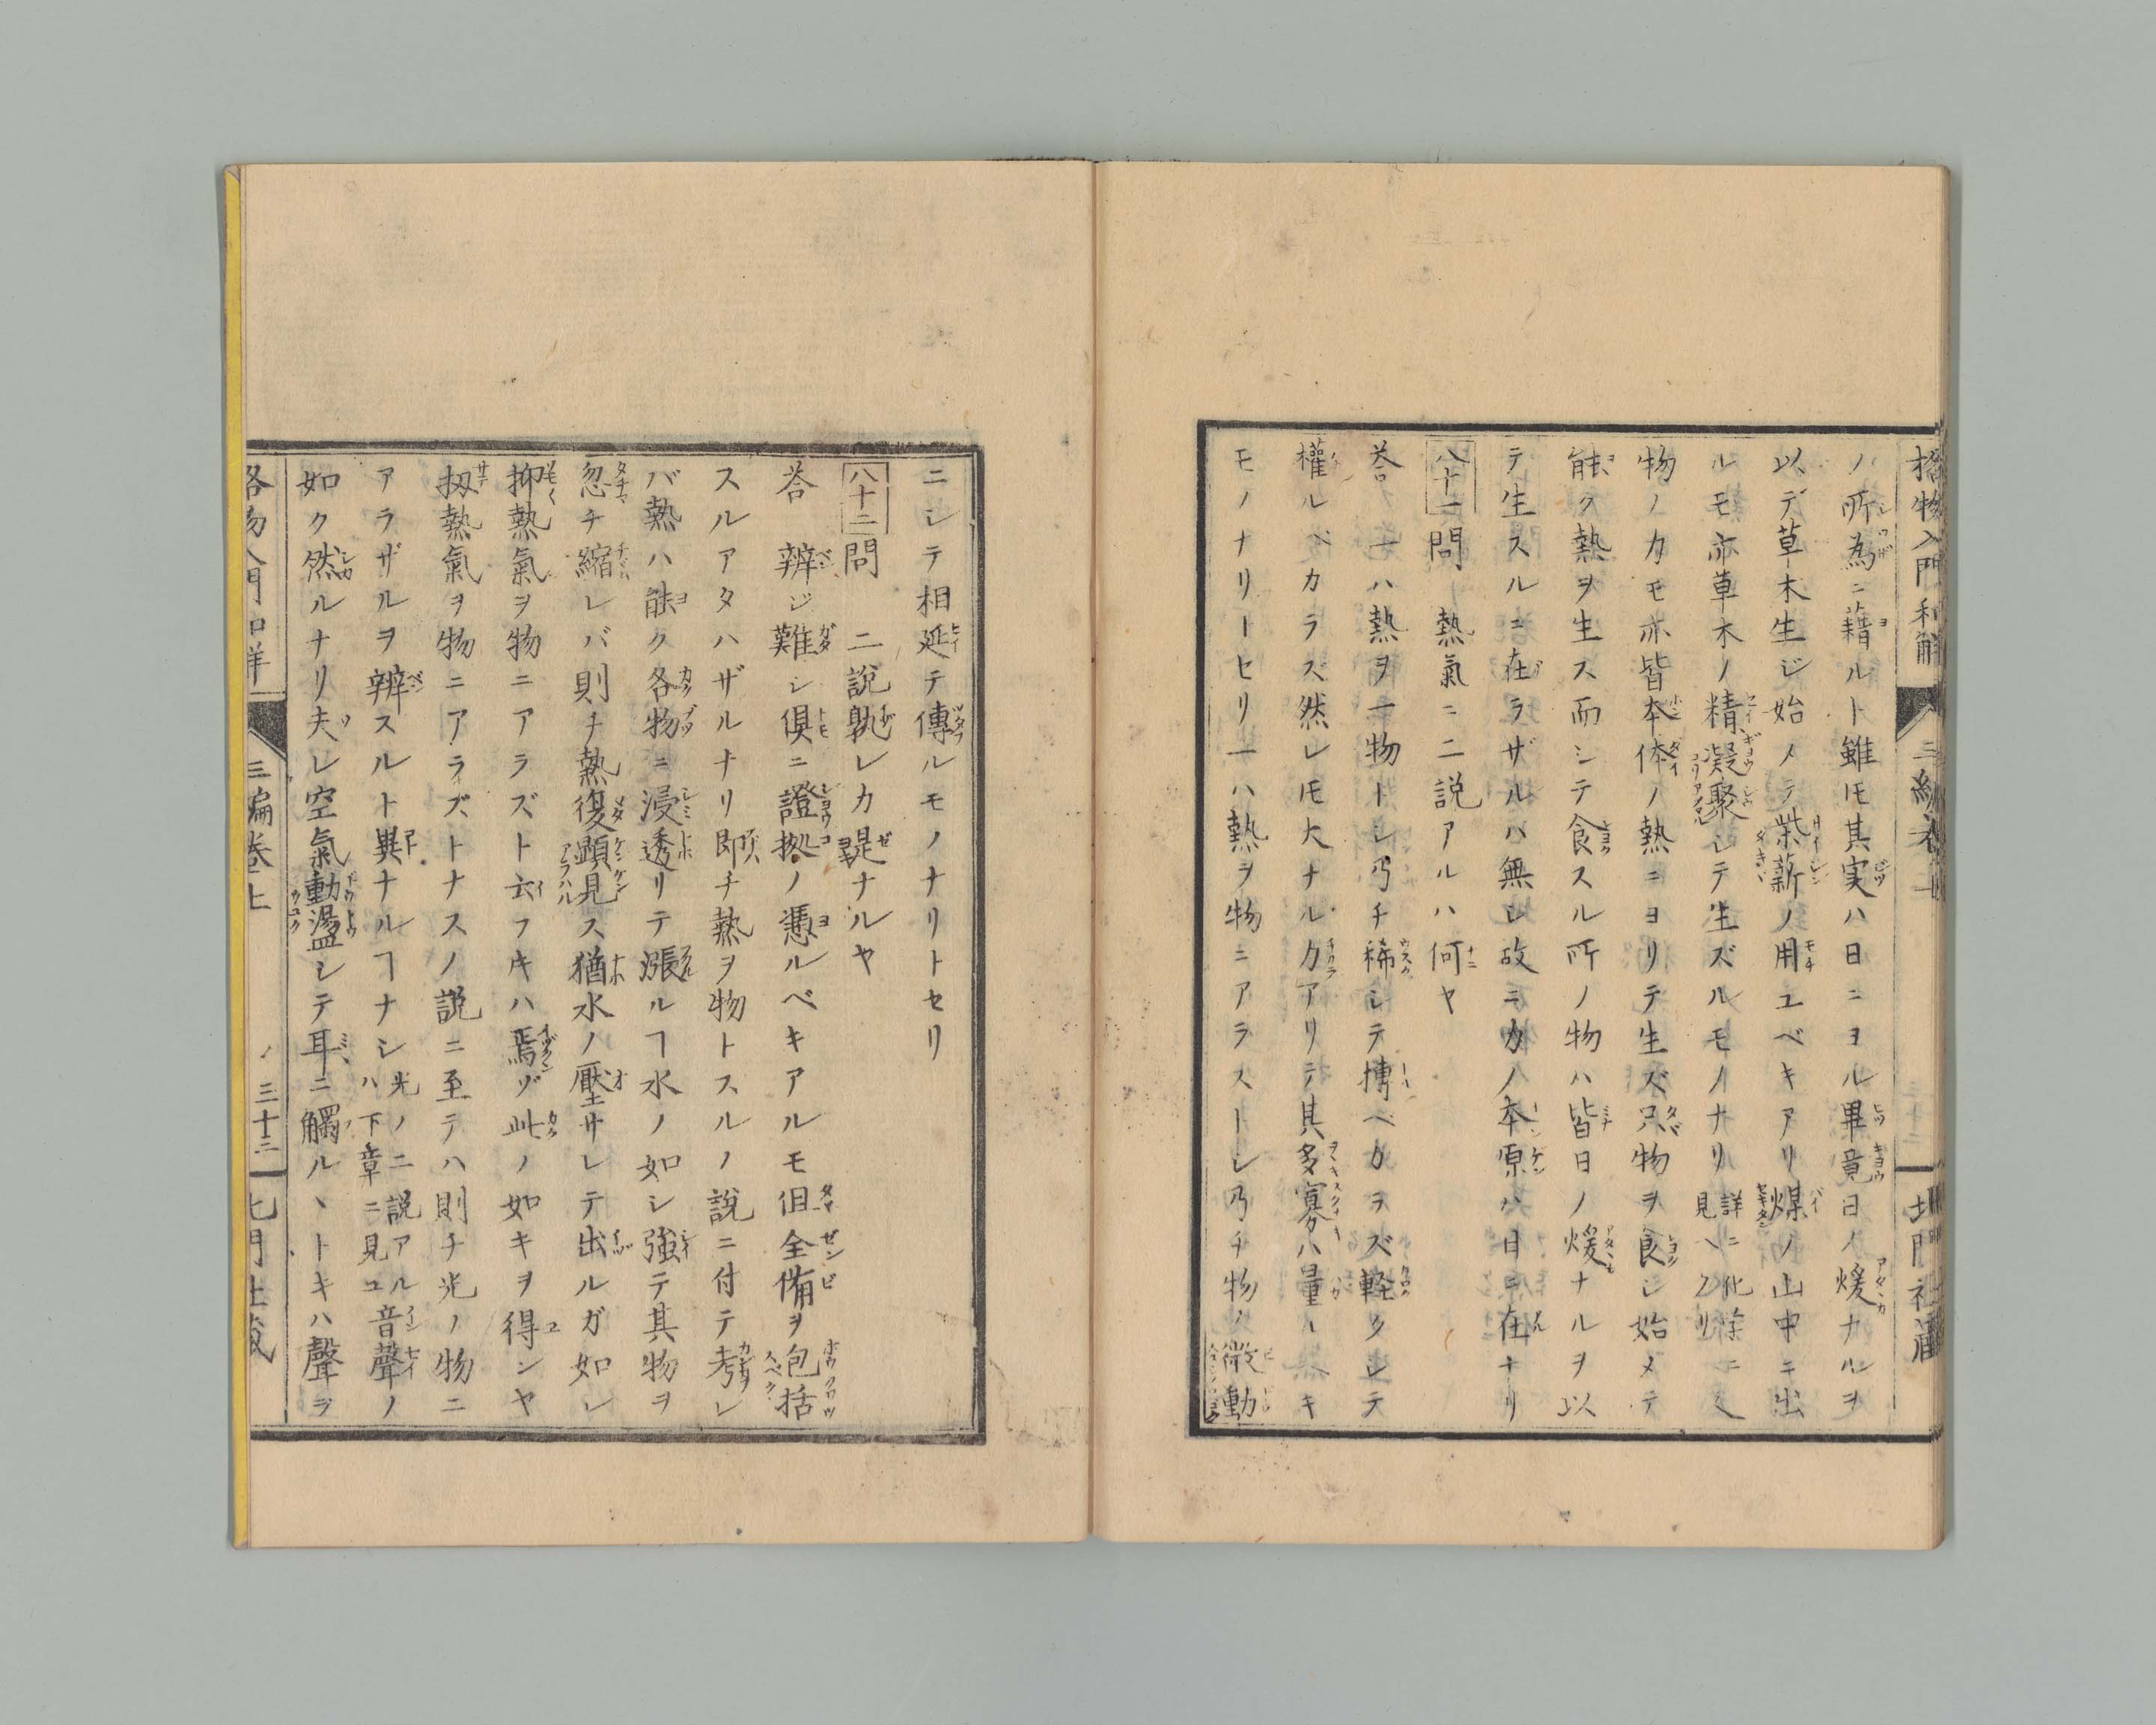 格物入門和解
三編巻上
北門社蔵
ノ所為ニ藉ルト雖𪜈其実ハ日ニヨル畢竟日ノ煖カナルヲ
以テ草木生ジ始メテ柴薪ノ用ユベキアリ煤ノ山中ニ出
ルモ亦草木ノ精凝聚シテ生ズルモノナリ詳ニ化学ニ見ヘタリ
物ノ力モ亦皆本体ノ熱ニヨリテ生ズ只物ヲ食シ始メテ
能ク熱ヲ生ス而シテ食スル所ノ物ハ皆日ノ煖ナルヲ以
テ生スルニ在ラザルハ無シ故ニ力ノ本原ハ日ニ在ナリ
八十一問 熱氣ニ二説アルハ何ヤ
荅 一ハ熱ヲ一物トシ乃チ稀シテ摶ベカラズ軽クシテ
權ルベカラズ然レ𪜈大ナル力アリテ其多寡ハ量ルベキ
モノナリトセリ一ハ熱ヲ物ニアラストシ乃チ物ノ微動
ニシテ相延テ傳ルモノナリトセリ
八十二問 二説孰レカ是ナルヤ
荅 辨ジ難シ俱ニ證拠ノ憑ルベキアルモ但全備ヲ包括
スルアタハザルナリ即チ熱ヲ物トスルノ説ニ付テ考レ
バ熱ハ能ク各物ニ浸透リテ漲ルヿ水ノ如シ強テ其物ヲ
忽チ縮レバ則チ熱復顕見ス猶水ノ壓サレテ出ルガ如シ
抑熱氣ヲ物ニアラズト云フキハ焉ゾ此ノ如キヲ得ンヤ
扨熱氣ヲ物ニアラズトナスノ説ニ至テハ則チ光ノ物ニ
アラザルヲ辨スルト異ナルヿナシ光ノ二説アルハ下章ニ見ユ音聲ノ
如ク然ルナリ夫レ空氣動盪シテ耳ニ觸ルヽトキハ聲ヲ
格物入門和解
三編巻上
三十三
北門社蔵